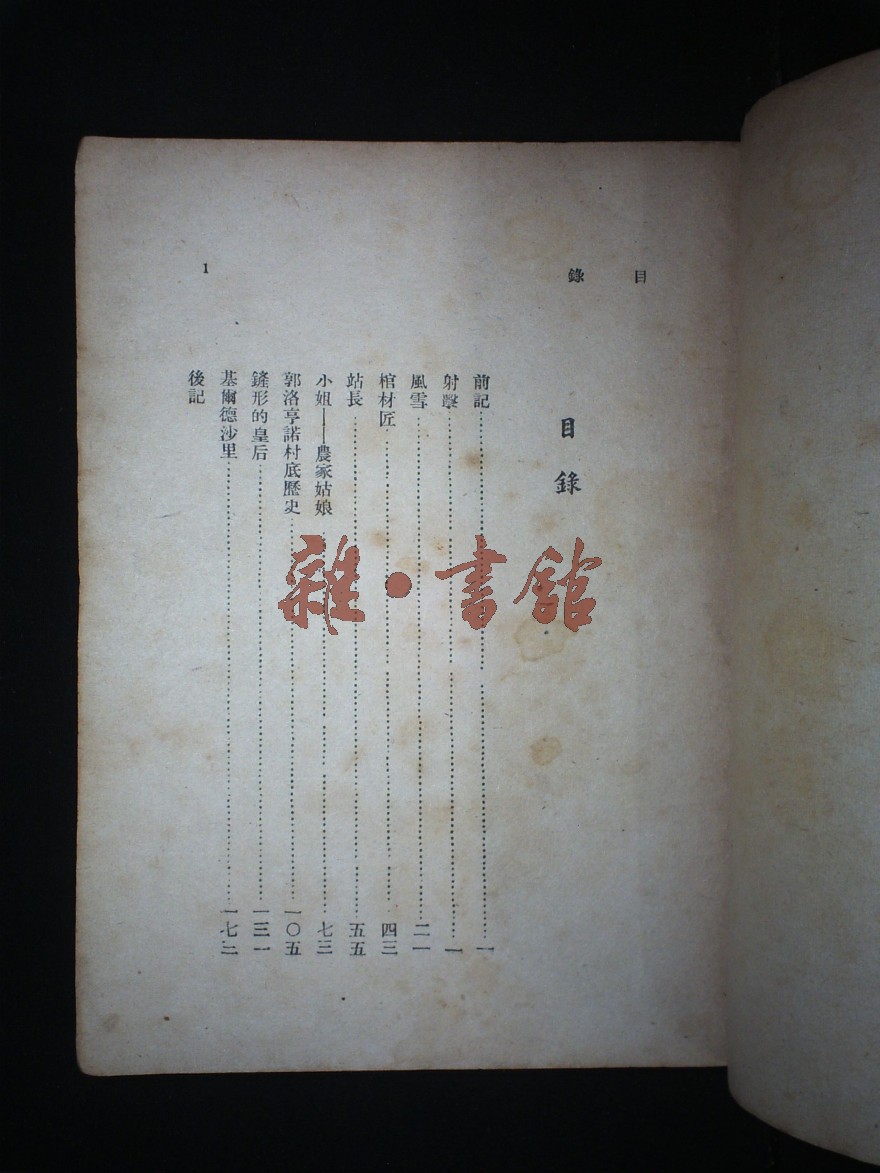 目錄
1
目錄
前記……一
射擊……一
風雪……二一
棺材匠……四三
站長……五五
小姐——農家姑娘……七三
郭洛亨諾村底歷史……一〇五
鏟形的皇后……一三一
基爾德沙里……一七三
後記
雜·書館